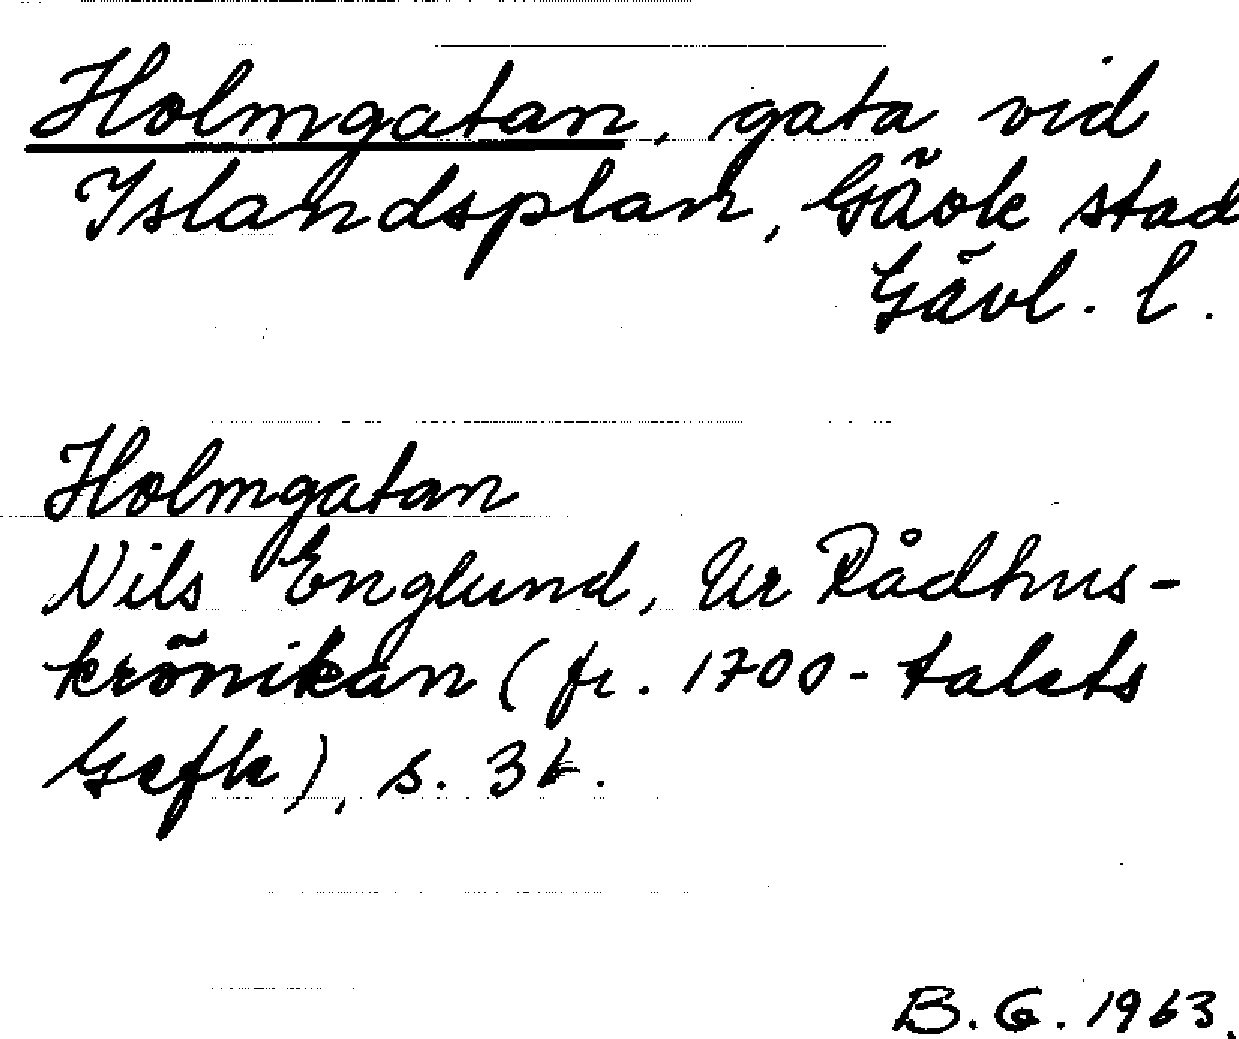 Holmgatan, gata vid
Islandsplan, Gävle stad
Gävl. l.
Holmgatan
Nils Englund, Ur Rådhus-
krönikan (fr. 1700-talets
Gefle), s. 36.
B.G. 1963.